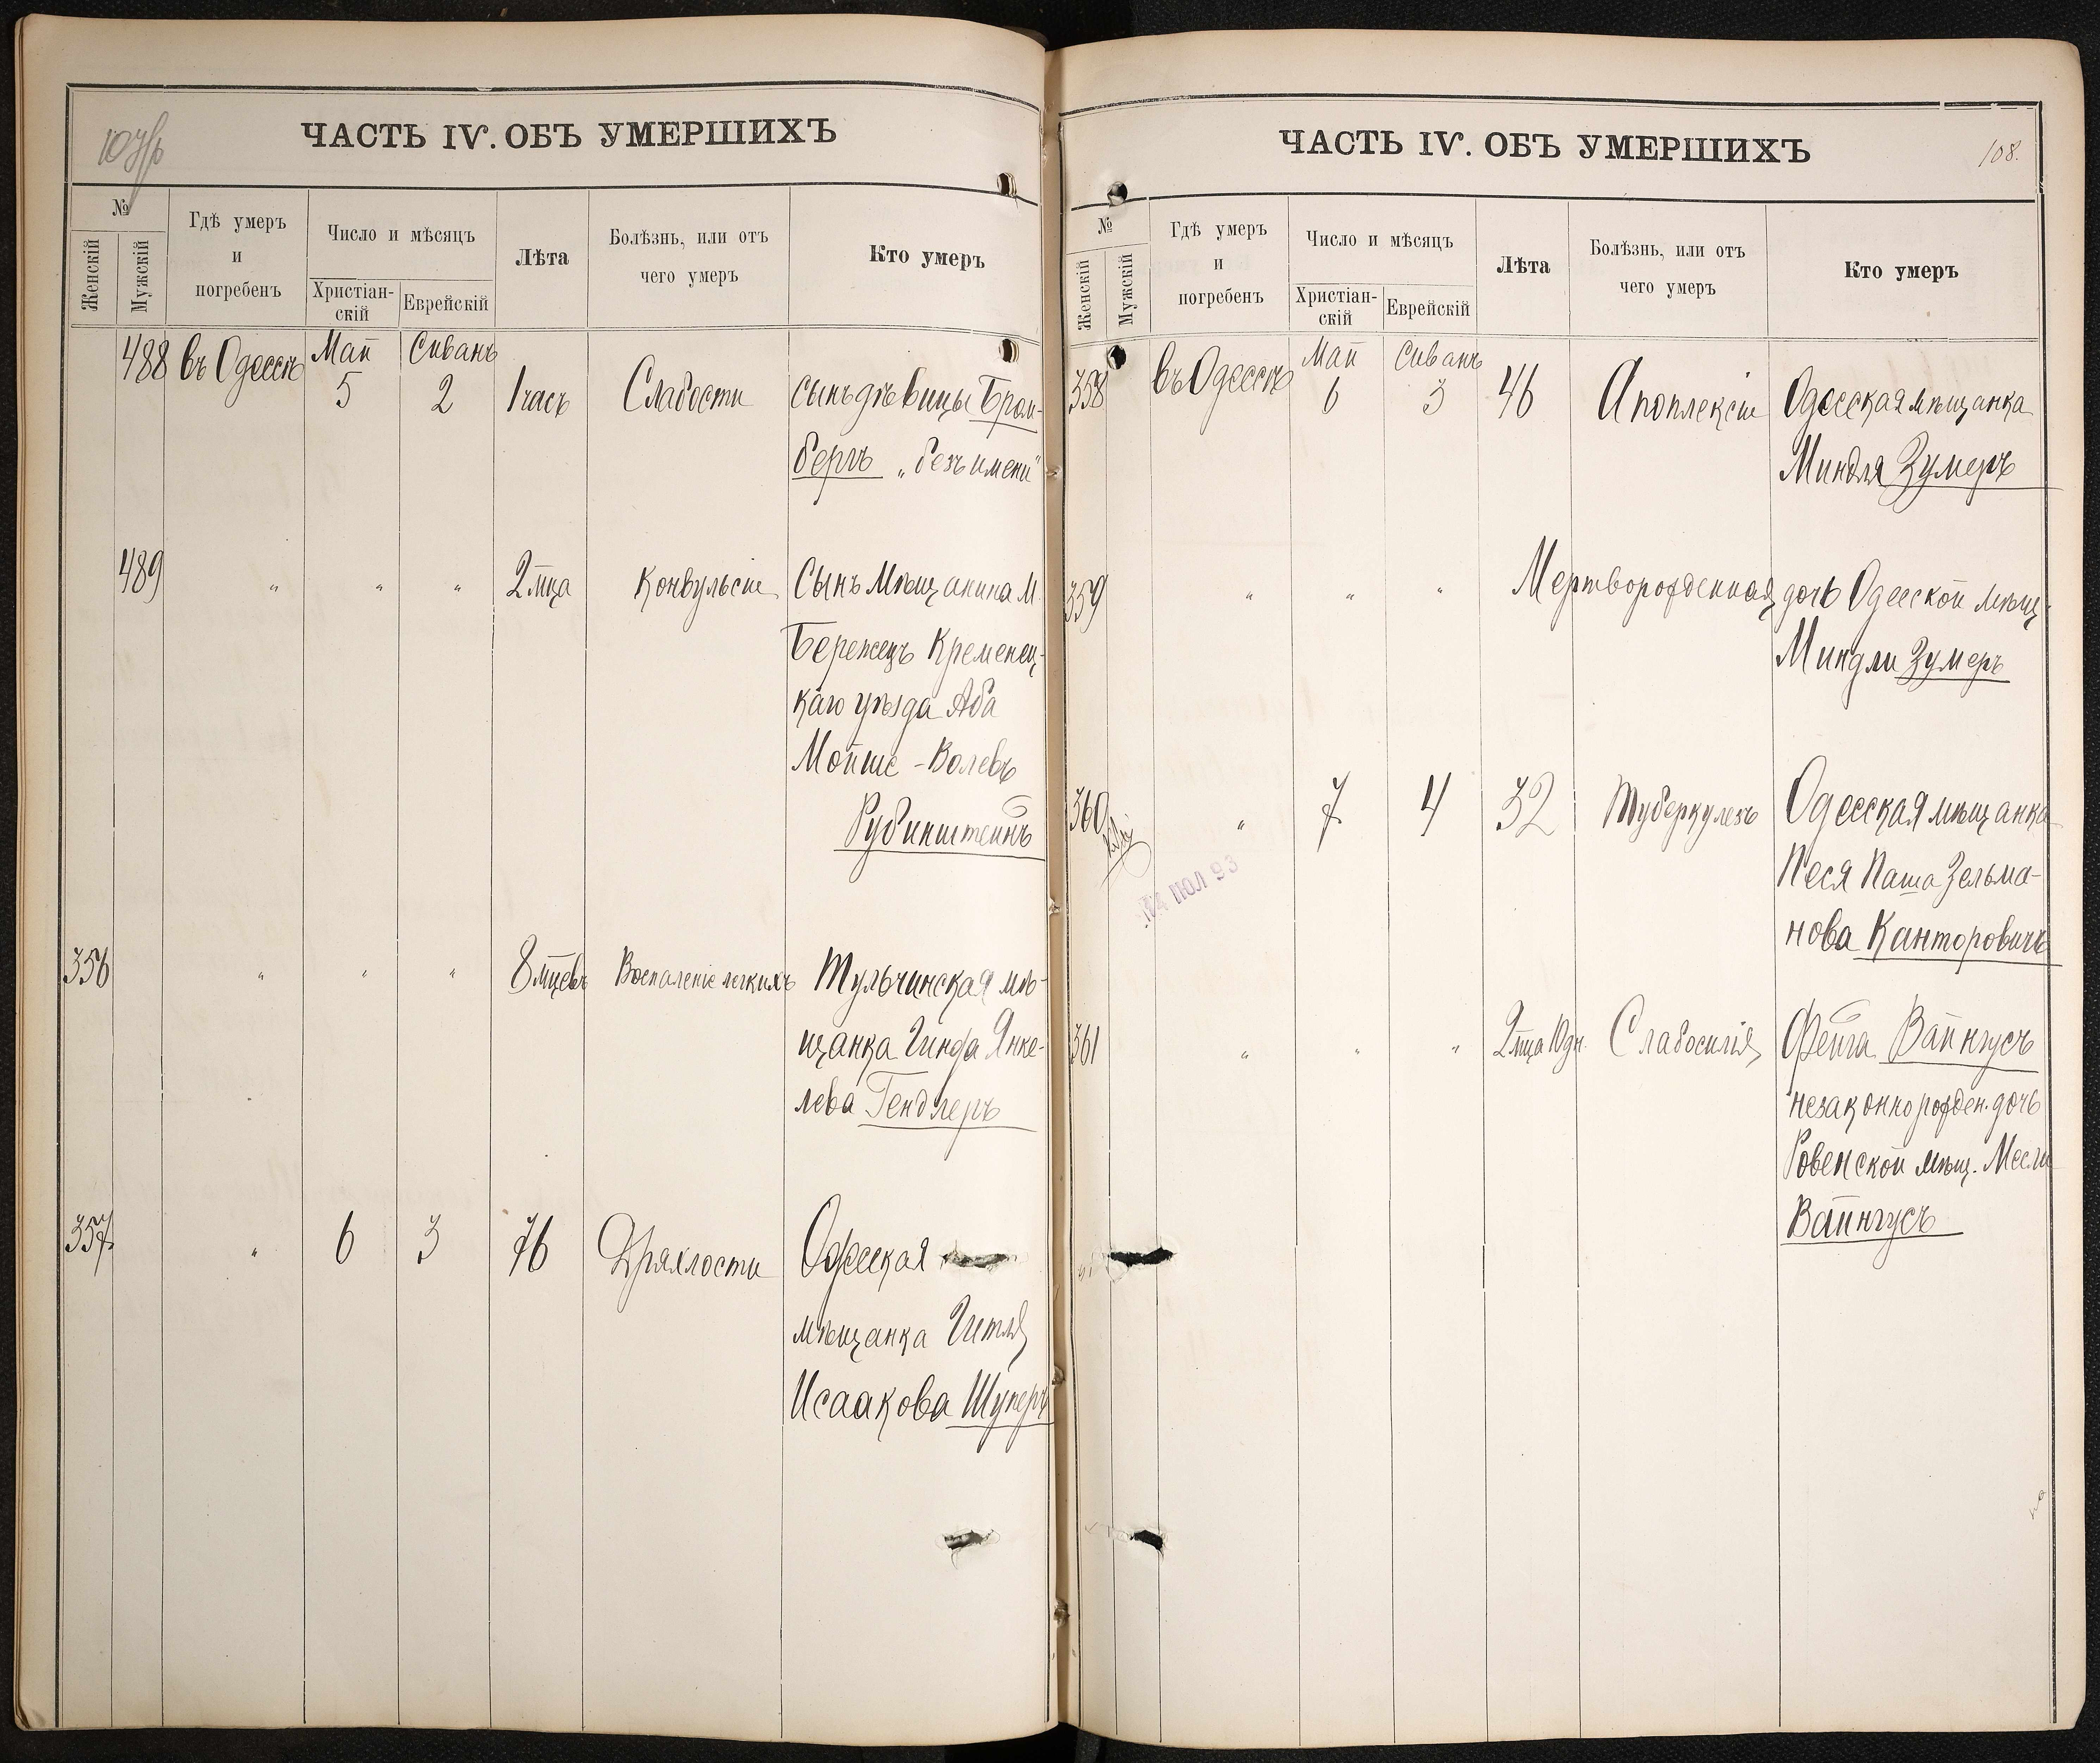 107об
ЧАСТЬ IV. ОБЪ УМЕРШИХЪ
№
Женскій
Мужскій
Гдѣ умеръ
и
погребенъ
Число и мѣсяцъ
Христіан-
скій
Еврейскій
Лѣта
Болѣзнь, или отъ
чего умеръ
Кто умеръ
488 въ Одессѣ Май Сиванъ
5 2 1 часъ Слабости Сынъ дѣвицы Бром-
бергъ „безъ имени"
489 " " " 2 мца Конвульсіи Сынъ Мѣщанина м.
Бережецъ Кременец-
каго уѣзда Аба
Мойше-Волевъ
Рубинштейнъ
356 " " " 8 мцевъ Воспаленіе легкихъ Тульчинская мѣ-
щанка Гинда Янке-
лева Гендлеръ
357 " 6 3 76 Дряхлости Одесская
мѣщанка Гитля
Исаакова Шуперъ
ЧАСТЬ IV. ОБЪ УМЕРШИХЪ
108.
№
Женскій
Мужскій
Гдѣ умеръ
и
погребенъ
Число и мѣсяцъ
Христіан-
скій
Еврейскій
Лѣта
Болѣзнь, или отъ
чего умеръ
Кто умеръ
358 въ Одессѣ Май Сиванъ
6 3 46 Апоплексіи Одесская мѣщанка
Миндля Зумеръ
359 " " " Мертворожденная дочь Одесской мѣщ.
Миндли Зумеръ
360 " 7 4 32 Туберкулезъ Одесская мѣщанка
Песя Паша Зельма-
нова Канторовичъ
ИЮЛ 93
361 " " " 2 мца 10 дн. Слабосилія Фейга Вайнгусъ
незаконнорожден. дочь
Ровенской мѣщ. Месли
Вайнгусъ